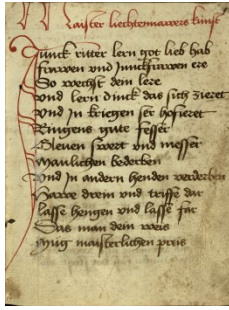 Maister liechtenawers kunst
Junck ritter lern got lieb hab
frawen vnd Junckfrawen ere
So wechst dein lere
vnd lern dinck das dich zieret
vnd In kriegen ser hofieret
Ringens gute fesser
Gleuen swert vnd messer
Manlichen bederben
Vnd In andern henden verderben
Hawe drein vnd triffe dar
lasse hengen vnd lasse far
Das man dein weis
Mug maisterlichen preis